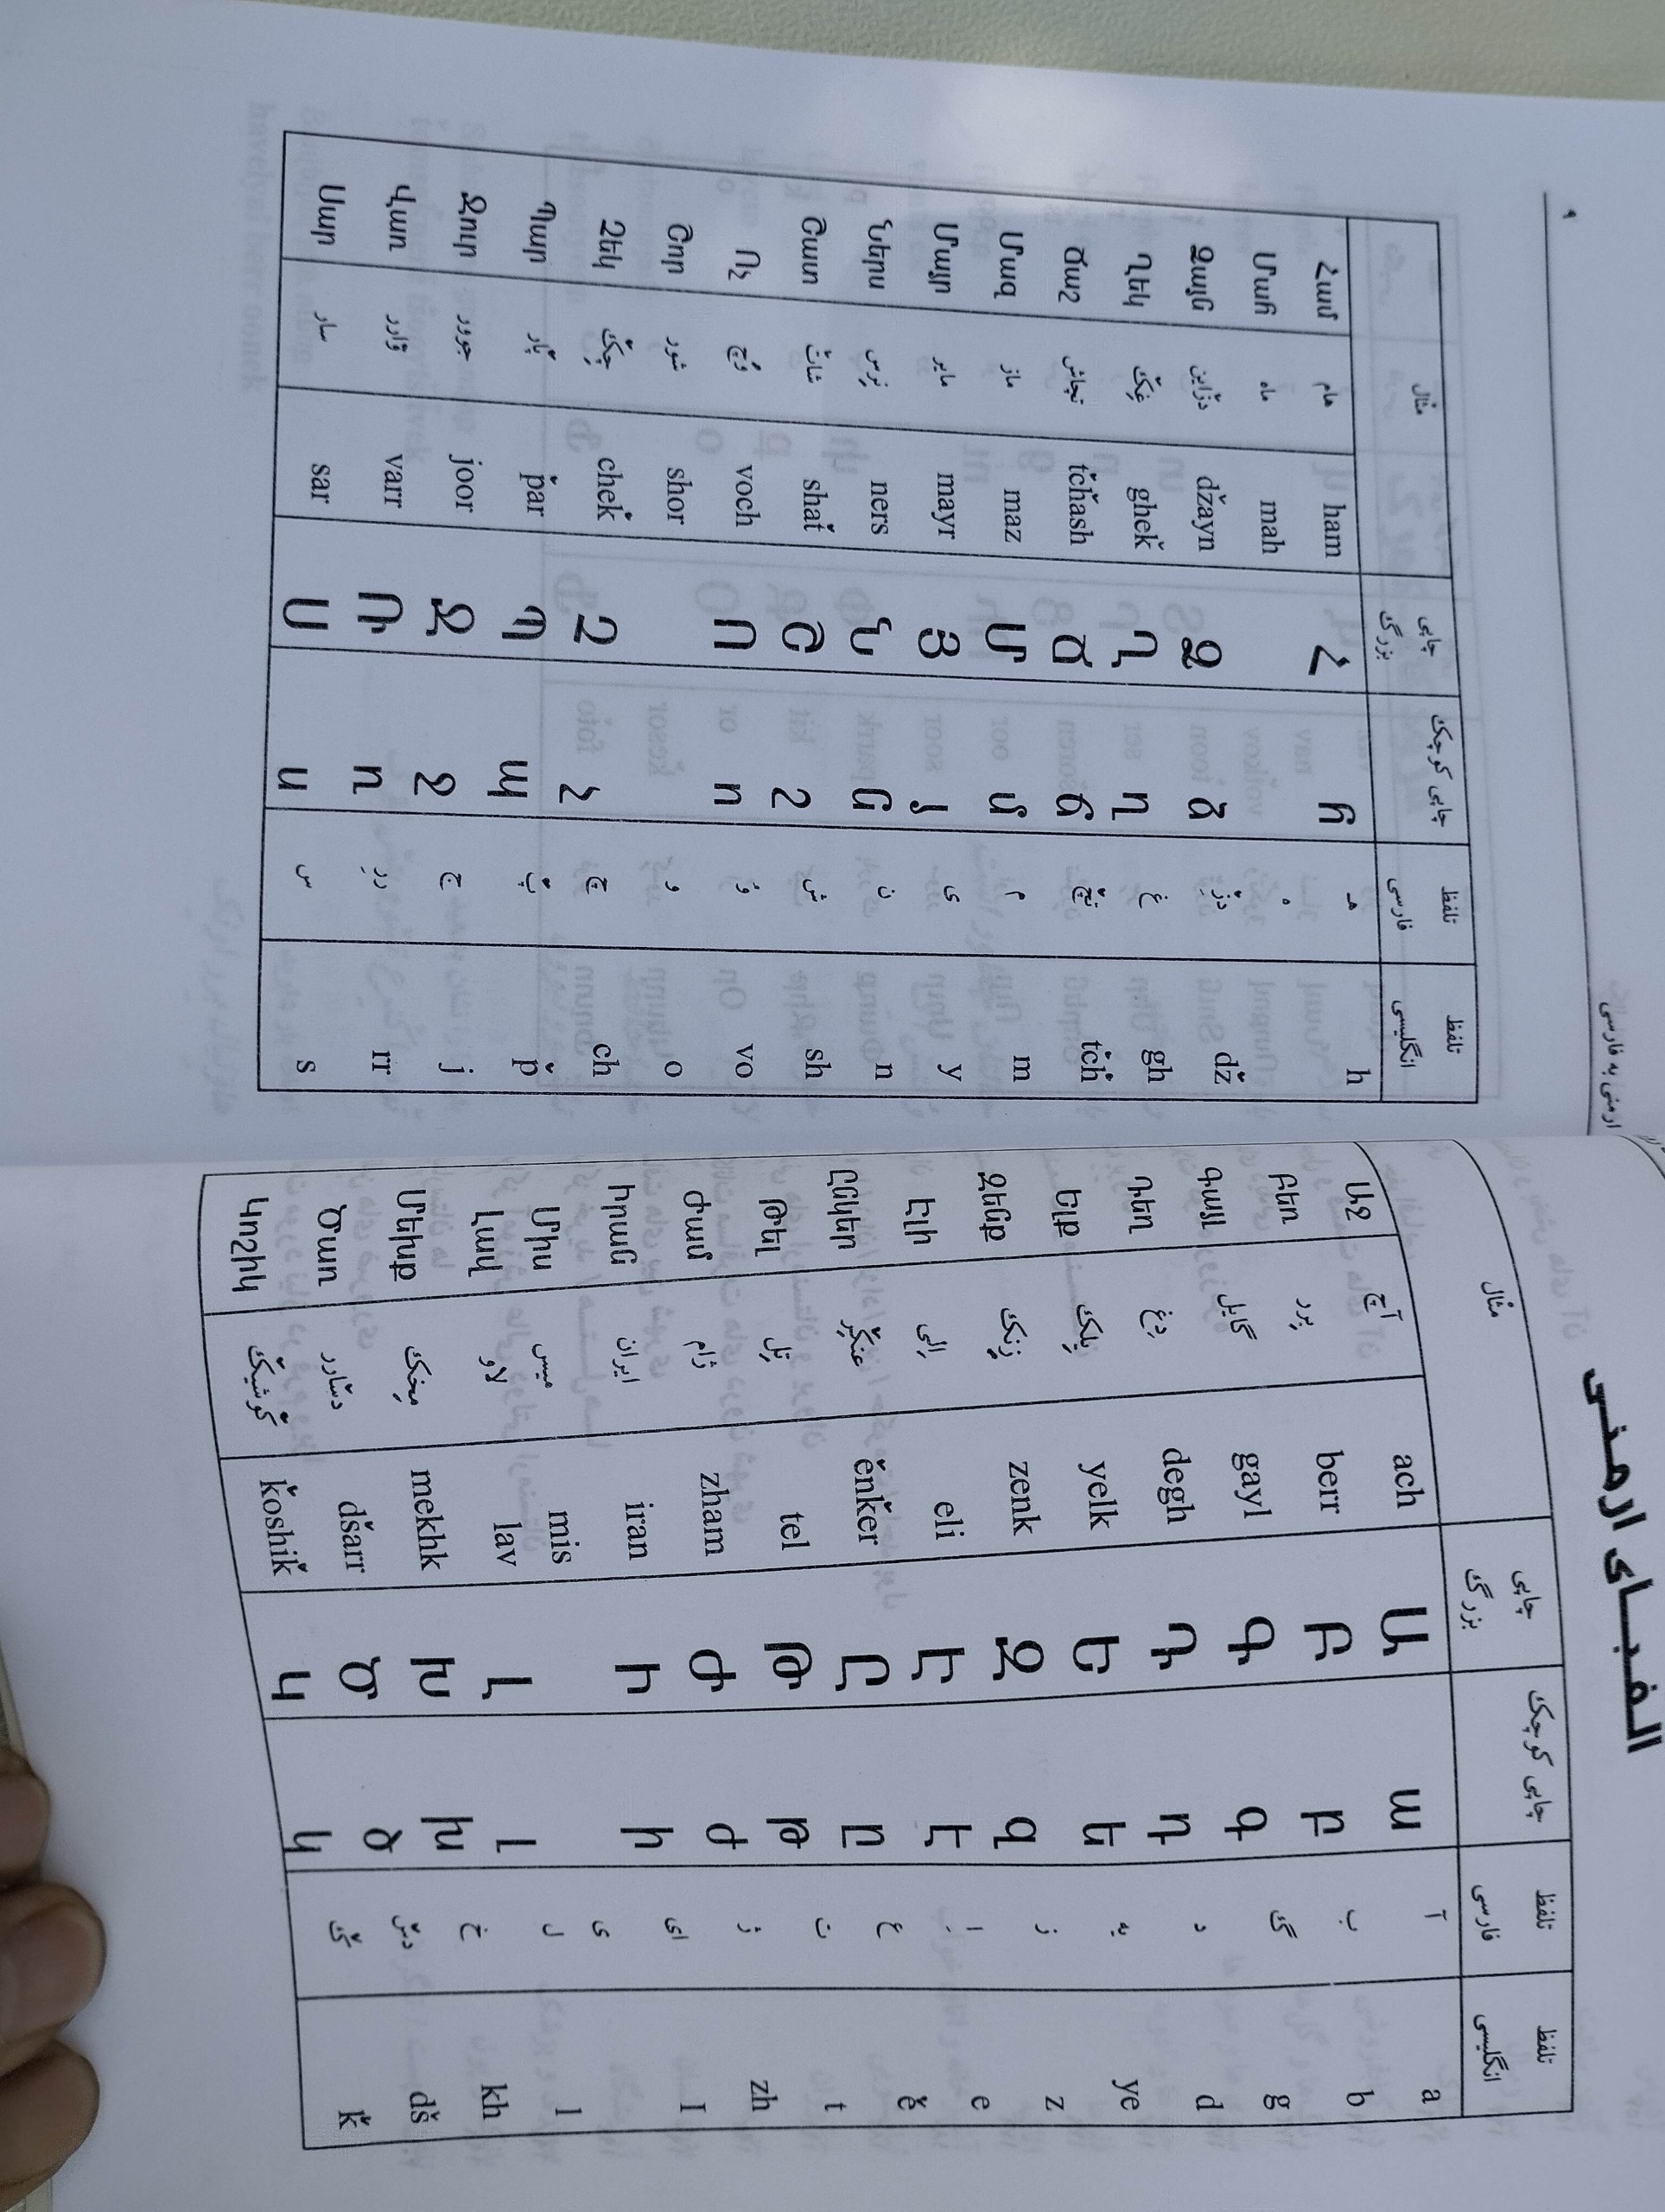 الفبـای ارمنـی
مثال | چاپی بزرگ | چاپی کوچک | تلفظ فارسی | تلفظ انگلیسی
Աջ آج ach Ա ա آ a
Բեռ بِرر berr Բ բ ب b
Գայլ گایل gayl Գ գ گ g
Դեղ دِغ degh Դ դ د d
Ելք یِلک yelk Ե ե یه ye
Զենք زِنک zenk Զ զ ز z
Էլի اِلی eli Է է اِ e
Ընկեր ěnǩer Ը ը ع ě
Թել تِل tel Թ թ ت t
Ժամ ژام zham Ժ ժ ژ zh
Իրան ایران iran Ի ի ای I
Միս میس mis ی
Լավ لاو lav Լ լ ل l
Մեխք مِخک mekhk Խ խ خ kh
Ծառ dšarr Ծ ծ dš
Կոշիկ ǩoshiǩ Կ կ ǩ
ارمنی به فارسی
۹
مثال | چاپی بزرگ | چاپی کوچک | تلفظ فارسی | تلفظ انگلیسی
Համ هام ham Հ հ هـ h
Մահ ماه mah ه
Ձայն دزاین džayn Ձ ձ dž
Ղեկ غِک gheǩ Ղ ղ غ gh
Ճաշ Ճ ճ
Մազ ماز maz Մ մ م m
Մայր مایر mayr Յ յ ی y
Ներս نِرس ners Ն ն ن n
Շատ شات Շ շ ش sh
Ոչ وُچ voch Ո ո وُ vo
Շոր شور shor و o
Չեկ چِک cheǩ Չ չ چ ch
Պար پار Պ պ پ
Ջուր جوور joor Ջ ջ ج j
Վառ وارر varr Ռ ռ رر rr
Սար سار sar Ս ս س s